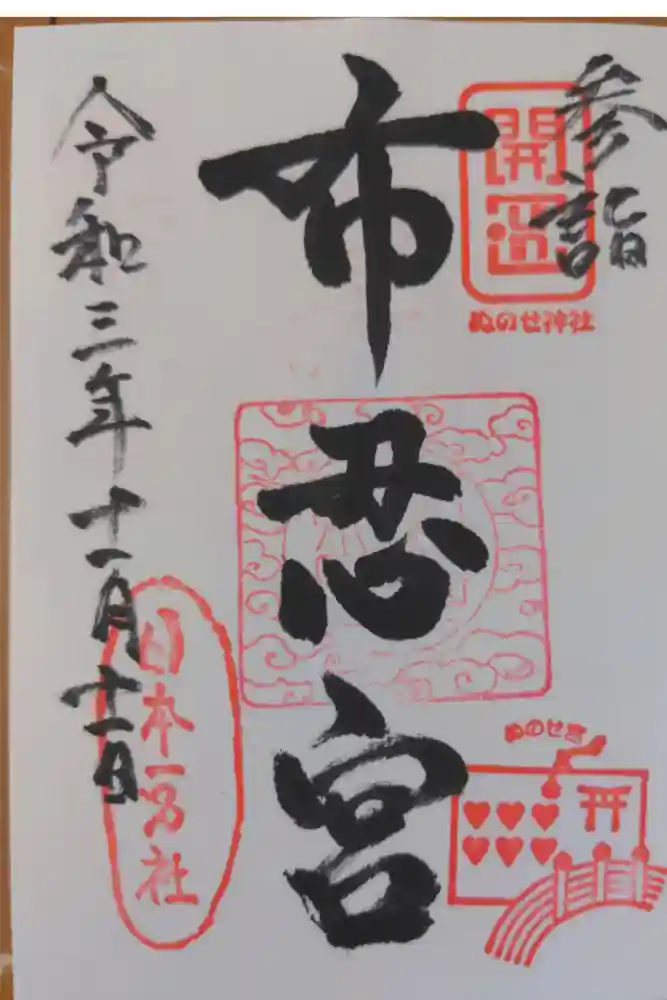 参詣
開運
ぬのせ神社
布忍宮
ぬのせ宮
令和三年十一月十一日
日本一宮社